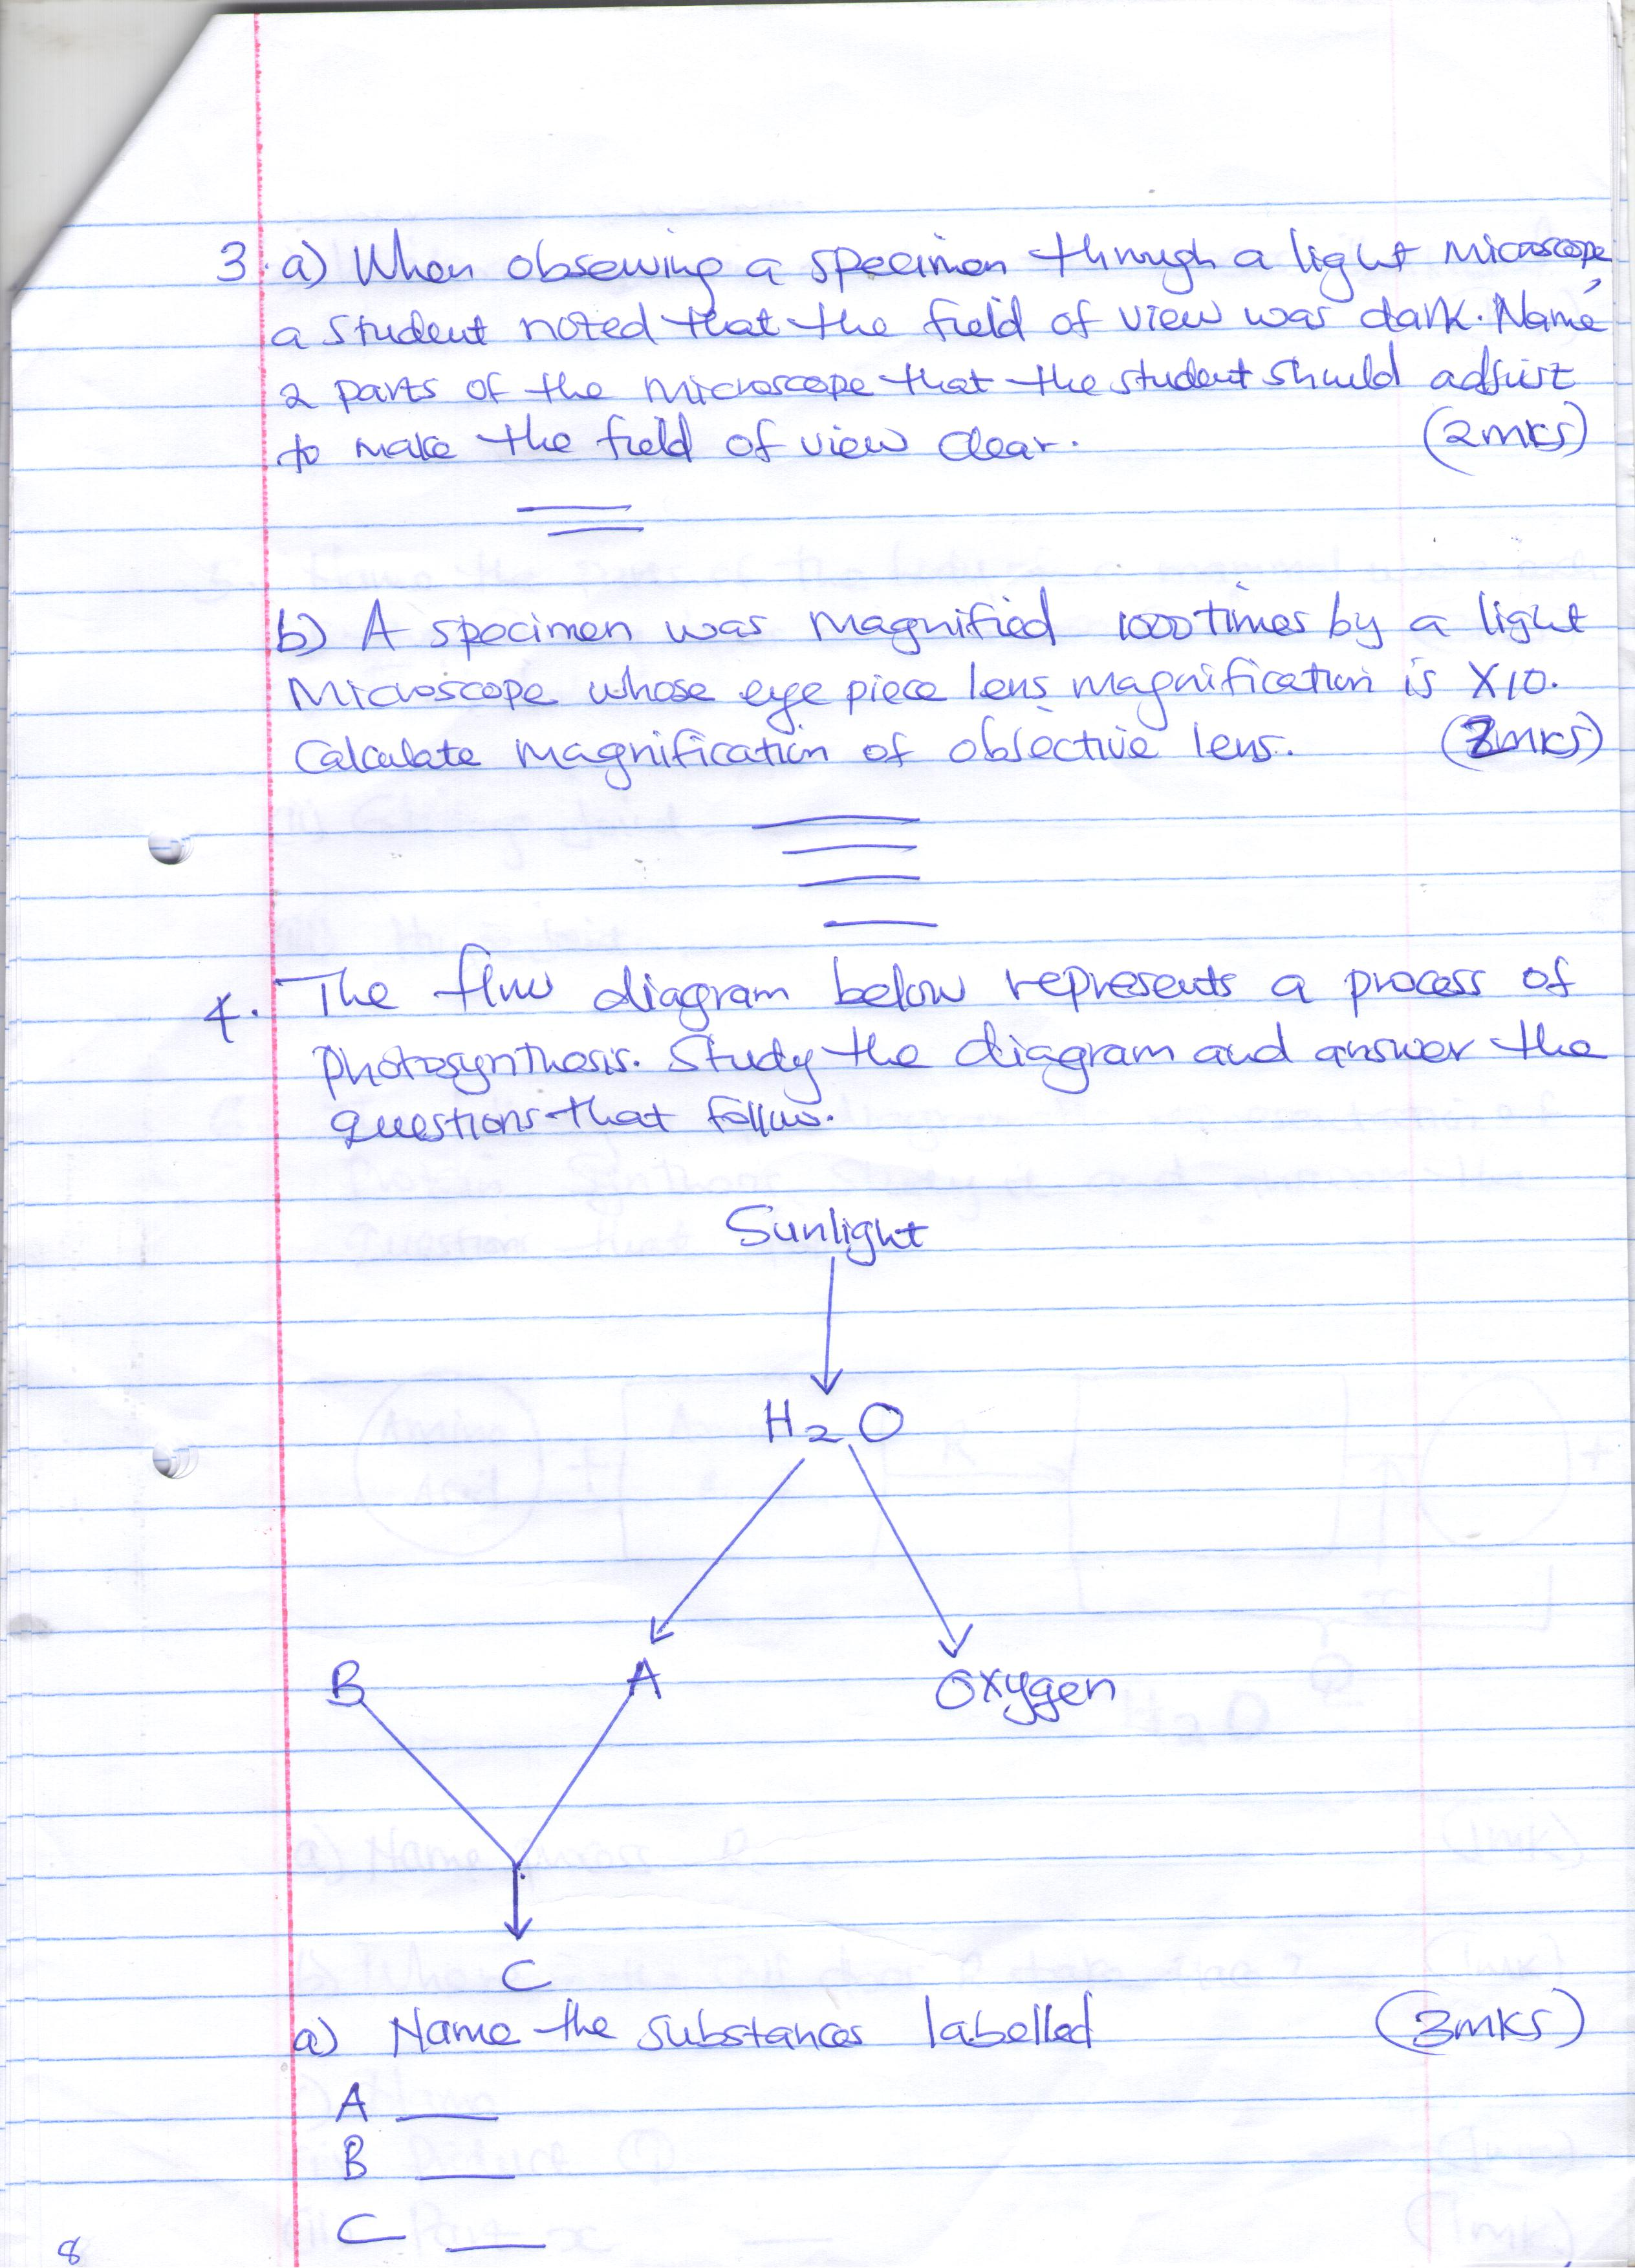 3. a) When observing a specimen through a light microscope,
a student noted that the field of view was dark. Name
2 parts of the microscope that the student should adjust
to make the field of view clear. (2mks)
b) A specimen was magnified 1000 times by a light
Microscope whose eye piece lens magnification is X10.
Calculate magnification of objective lens. (2mks)
4. The flow diagram below represents a process of
photosynthesis. Study the diagram and answer the
questions that follow.
Sunlight
H2O
B A Oxygen
C
a) Name the substances labelled (3mks)
A
B
C
8